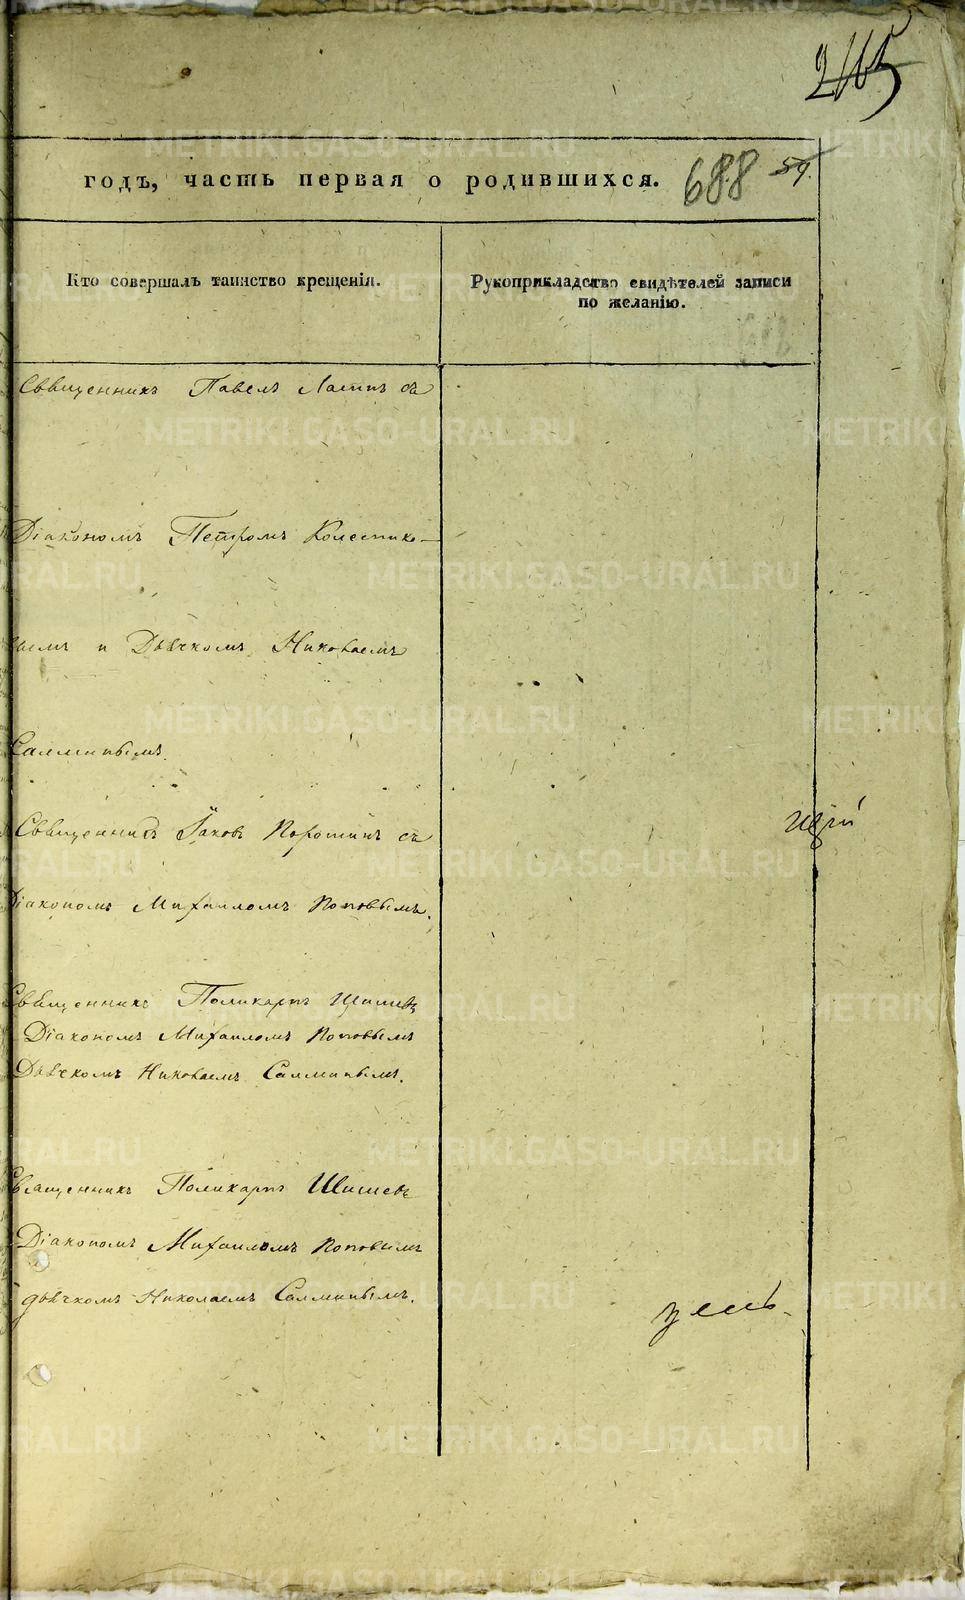 годъ, часть первая о родившихся. 688 59.
Кто совершалъ таинство крещенія.
Рукоприкладство свидѣтелей записи
по желанію.
Священникъ Павелъ съ
Діакономъ Петромъ Колеснико-
вымъ и Дьячкомъ Николаемъ
Салминымъ.
Священникъ Іаковъ Порошинъ съ
Діакономъ Михаиломъ Поповымъ.
Священникъ Поликарпъ Шишевъ
Діакономъ Михаиломъ Поповымъ
Дьячкомъ Николаемъ Салминымъ.
Священникъ Поликарпъ Шишевъ
Діакономъ Михаиломъ Поповымъ
дьячкомъ Николаемъ Салминымъ.
METRIKI.GASO-URAL.RU